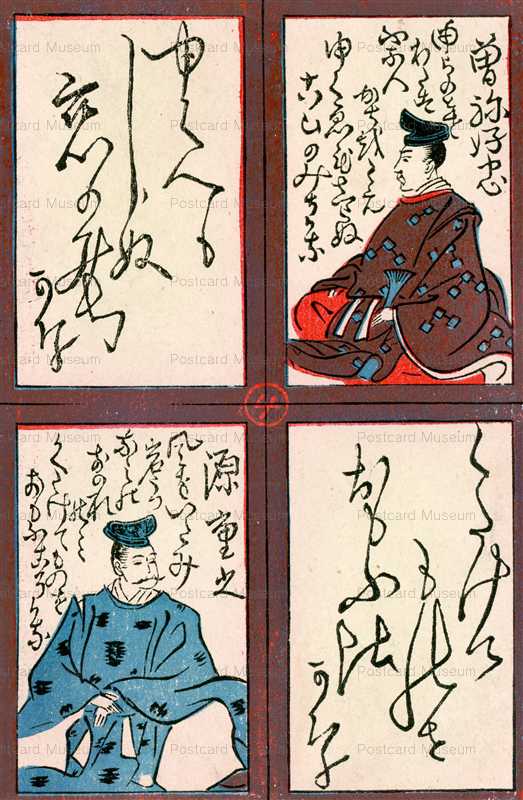 曽祢好忠
由らのとを
わたる
ふな人
かぢをたえ
ゆくゑもしらぬ
こひのみちかな
ゆくへも
しらぬ
恋の道
かな
くたけて
ものを
おもふ比
かな
源重之
風をいたみ
岩うつ
なみの
おのれ
のみ
くたけてものを
おもふころかな
Postcard Museum